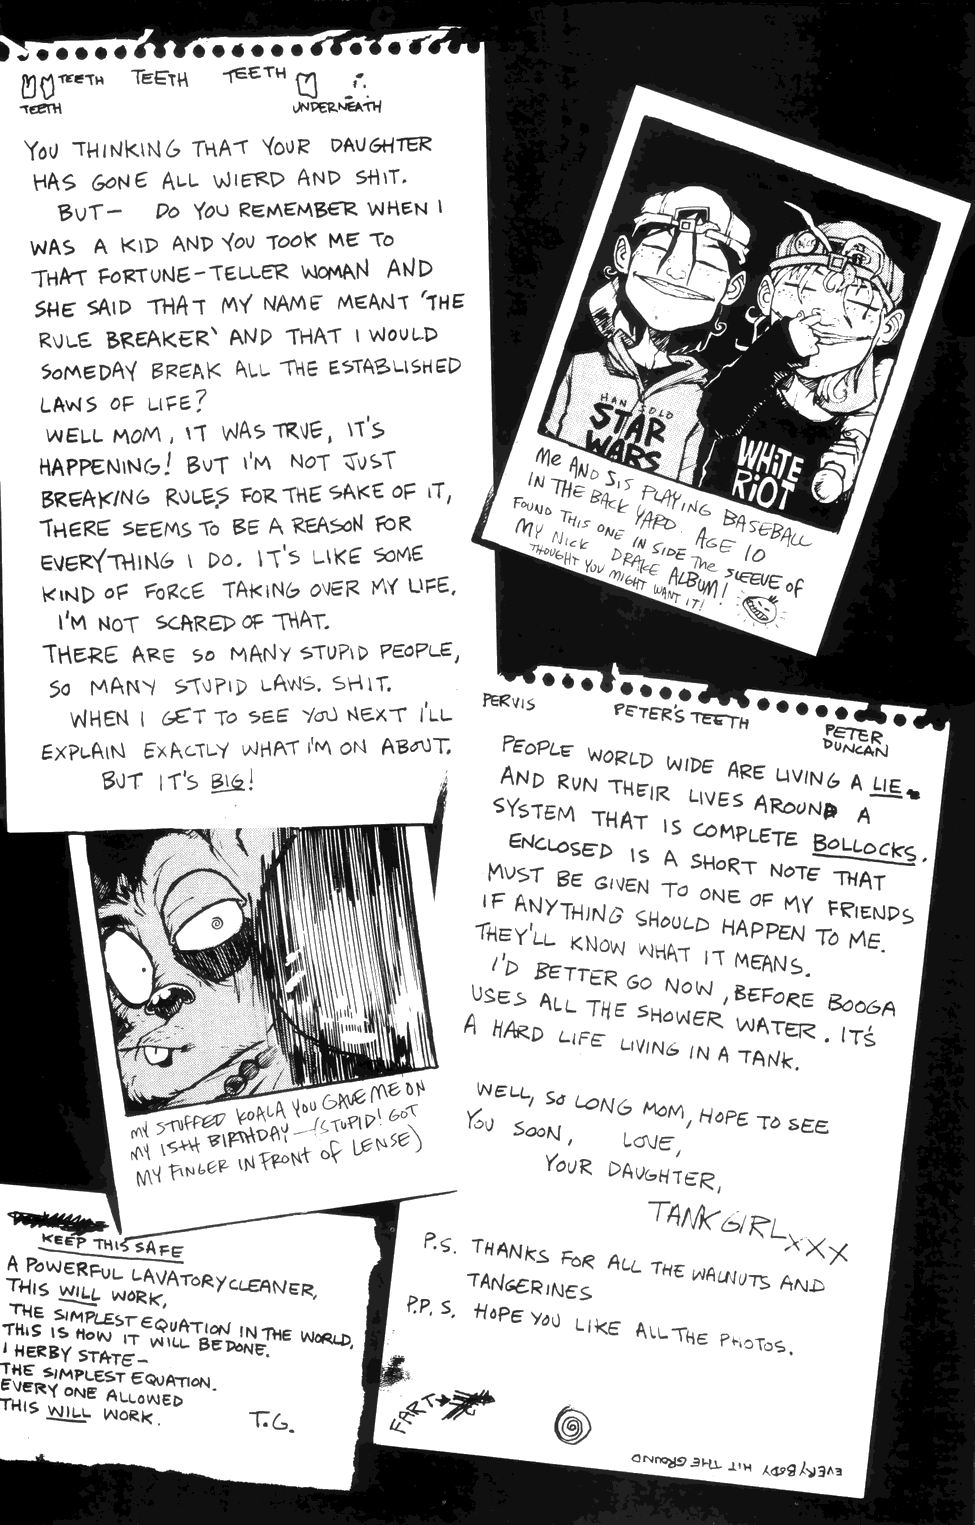 TEETH TEETH TEETH
TEETH UNDERNEATH
YOU THINKING THAT YOUR DAUGHTER
HAS GONE ALL WIERD AND SHIT.
BUT— DO YOU REMEMBER WHEN I
WAS A KID AND YOU TOOK ME TO
THAT FORTUNE-TELLER WOMAN AND
SHE SAID THAT MY NAME MEANT 'THE
RULE BREAKER' AND THAT I WOULD
SOMEDAY BREAK ALL THE ESTABLISHED
LAWS OF LIFE?
WELL MOM, IT WAS TRUE, IT'S
HAPPENING! BUT I'M NOT JUST
BREAKING RULES FOR THE SAKE OF IT,
THERE SEEMS TO BE A REASON FOR
EVERYTHING I DO. IT'S LIKE SOME
KIND OF FORCE TAKING OVER MY LIFE.
I'M NOT SCARED OF THAT.
THERE ARE SO MANY STUPID PEOPLE,
SO MANY STUPID LAWS. SHIT.
WHEN I GET TO SEE YOU NEXT I'LL
EXPLAIN EXACTLY WHAT I'M ON ABOUT.
BUT IT'S BIG!
HAN SOLO
STAR
WARS
WHITE
RIOT
ME AND SIS PLAYING BASEBALL
IN THE BACK YARD. AGE 10
FOUND THIS ONE IN SIDE THE SLEEVE OF
MY NICK DRAKE ALBUM!
THOUGHT YOU MIGHT WANT IT!
PERVIS PETER'S TEETH PETER
DUNCAN
PEOPLE WORLD WIDE ARE LIVING A LIE
AND RUN THEIR LIVES AROUND A
SYSTEM THAT IS COMPLETE BOLLOCKS.
ENCLOSED IS A SHORT NOTE THAT
MUST BE GIVEN TO ONE OF MY FRIENDS
IF ANYTHING SHOULD HAPPEN TO ME.
THEY'LL KNOW WHAT IT MEANS.
I'D BETTER GO NOW, BEFORE BOOGA
USES ALL THE SHOWER WATER. IT'S
A HARD LIFE LIVING IN A TANK.
WELL, SO LONG MOM, HOPE TO SEE
YOU SOON, LOVE,
YOUR DAUGHTER,
TANK GIRL XXX
P.S. THANKS FOR ALL THE WALNUTS AND
TANGERINES
P.P.S. HOPE YOU LIKE ALL THE PHOTOS.
FART
EVERYBODY HIT THE GROUND
MY STUFFED KOALA YOU GAVE ME ON
MY 15TH BIRTHDAY—(STUPID! GOT
MY FINGER IN FRONT OF LENSE)
KEEP THIS SAFE
A POWERFUL LAVATORY CLEANER,
THIS WILL WORK,
THE SIMPLEST EQUATION IN THE WORLD,
THIS IS HOW IT WILL BE DONE.
I HERBY STATE—
THE SIMPLEST EQUATION.
EVERY ONE ALLOWED
THIS WILL WORK.
T.G.